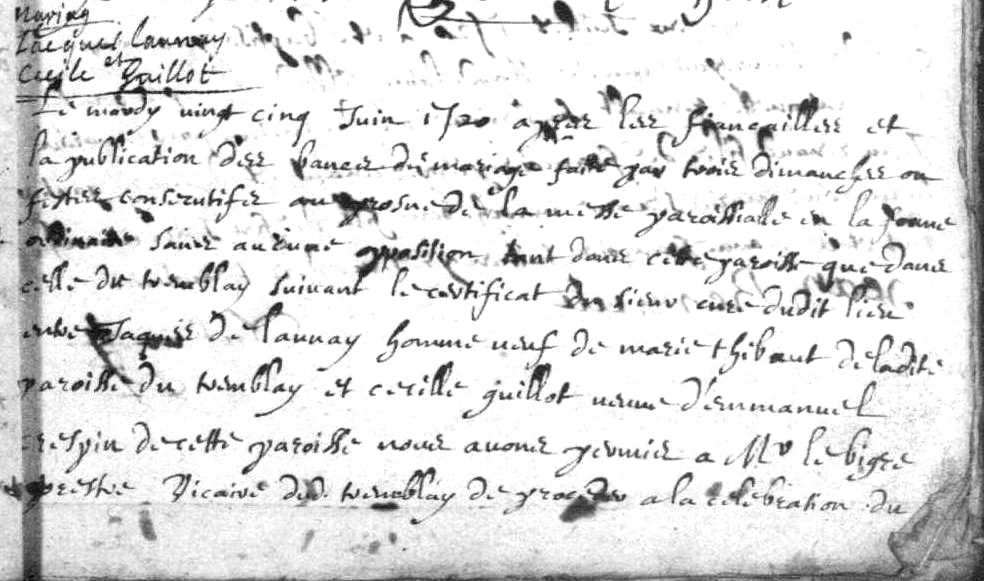 Mariag
Jacques Launay
et
Cecile Guillot
Le mardy vingt cinq Juin 1720 apres les fiancailles et
la publication des bancs de mariage faite par trois dimanches ou
festes consecutifes au prosne de la messe paroissialle en la forme
ordinaire sans aucune opposition tant dans cette paroisse que dans
celle du tremblay suivant le certificat du sieur curé dudit lieu
entre Jaques de launay homme veuf de marie thibaut de ladite
paroisse du tremblay et cecille guillot veuve d'emmanuel
crespin de cette paroisse nous avons permis a Mr le bigre
prestre Vicaire dud. tremblay de proceder a la celebration du